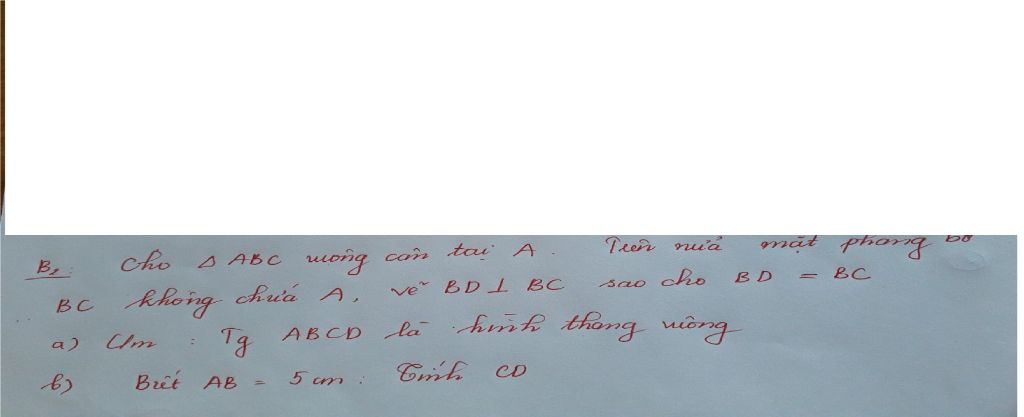 B₂: Cho Δ ABC vuông cân tại A. Trên nửa mặt phẳng bờ
BC không chứa A, vẽ BD ⊥ BC sao cho BD = BC
a) C/m : Tg ABCD là hình thang vuông
b) Biết AB = 5 cm : Tính CD